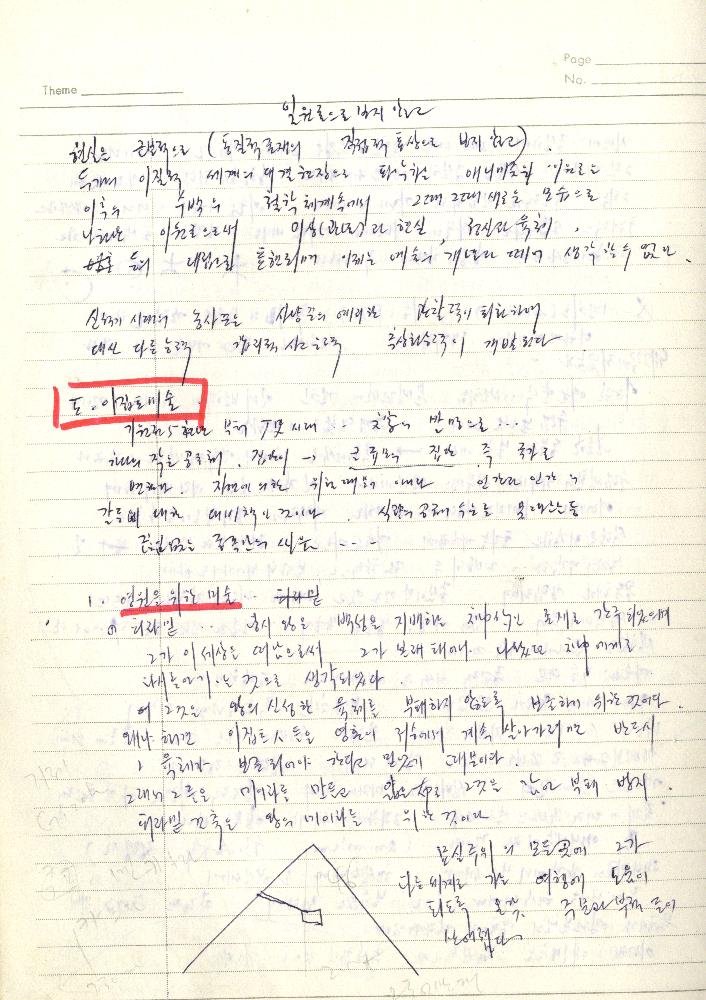 Page
No.
Theme
일원론으로 보지 않고
현실은 근본적으로 ( 동질적 존재의 직접적 통상으로 보지 않고 ) .
두개의 이질적 세계의 대결현장으로 파악하는 애니미즘의 이원론은
이후의 수많은 철학체계속에서 그때 그때 새로운 모습으로
나타난 이원론으로써 이상(관념)과 현실 , 정신과 육체 ,
등의 대립으로 표현되며 이제는 예술의 개념과 떼어 생각 할 수 없다 .
신석기 시대의 농사꾼은 사냥꾼의 예리한 관찰력이 퇴화하며
대신 다른 능력 합리적 사고능력 추상화능력이 개발된다
도. 이집트 미술
기원전 5천년 부터
하나의 작은 공동체 . 집단이 → 큰 규모의 집단 즉 국가로
변화한다 . 자연에 의한 위험 때문이 아니라 인간과 인간의
갈등에 대한 대비책인 것이다 . 식량의 공급이 수준을 못 따르는
끊임없는 종족간의 싸움 ....
1. 영원을 위한 미술 - 피라밋
피라밋 - 흡사 왕은 백성을 지배하는 신적인 존재로 간주되었으며
그가 이 세상을 떠남으로써 그가 본래 태어나 나왔던 신에게로
되돌아가는 것으로 생각되었다 .
이 그것은 왕의 신성한 육체를 부패하지 않도록 보존하기 위한 것이다 .
왜냐하면 이집트사람들은 영혼이 저승에서 계속 살아가려면 반드시
육체가 보존되어야 한다고 믿었기 때문이다
그래서 그들은 미이라를 만들고 그것을 감아 부패 방지 .
피라밋 건축은 왕의 미이라를 위한 것이다
묘실주위의 모든곳에 그가
다른 세계로 가는 여행에 도움이
되도록 온갖 주문과 부적 들이
쓰여졌다